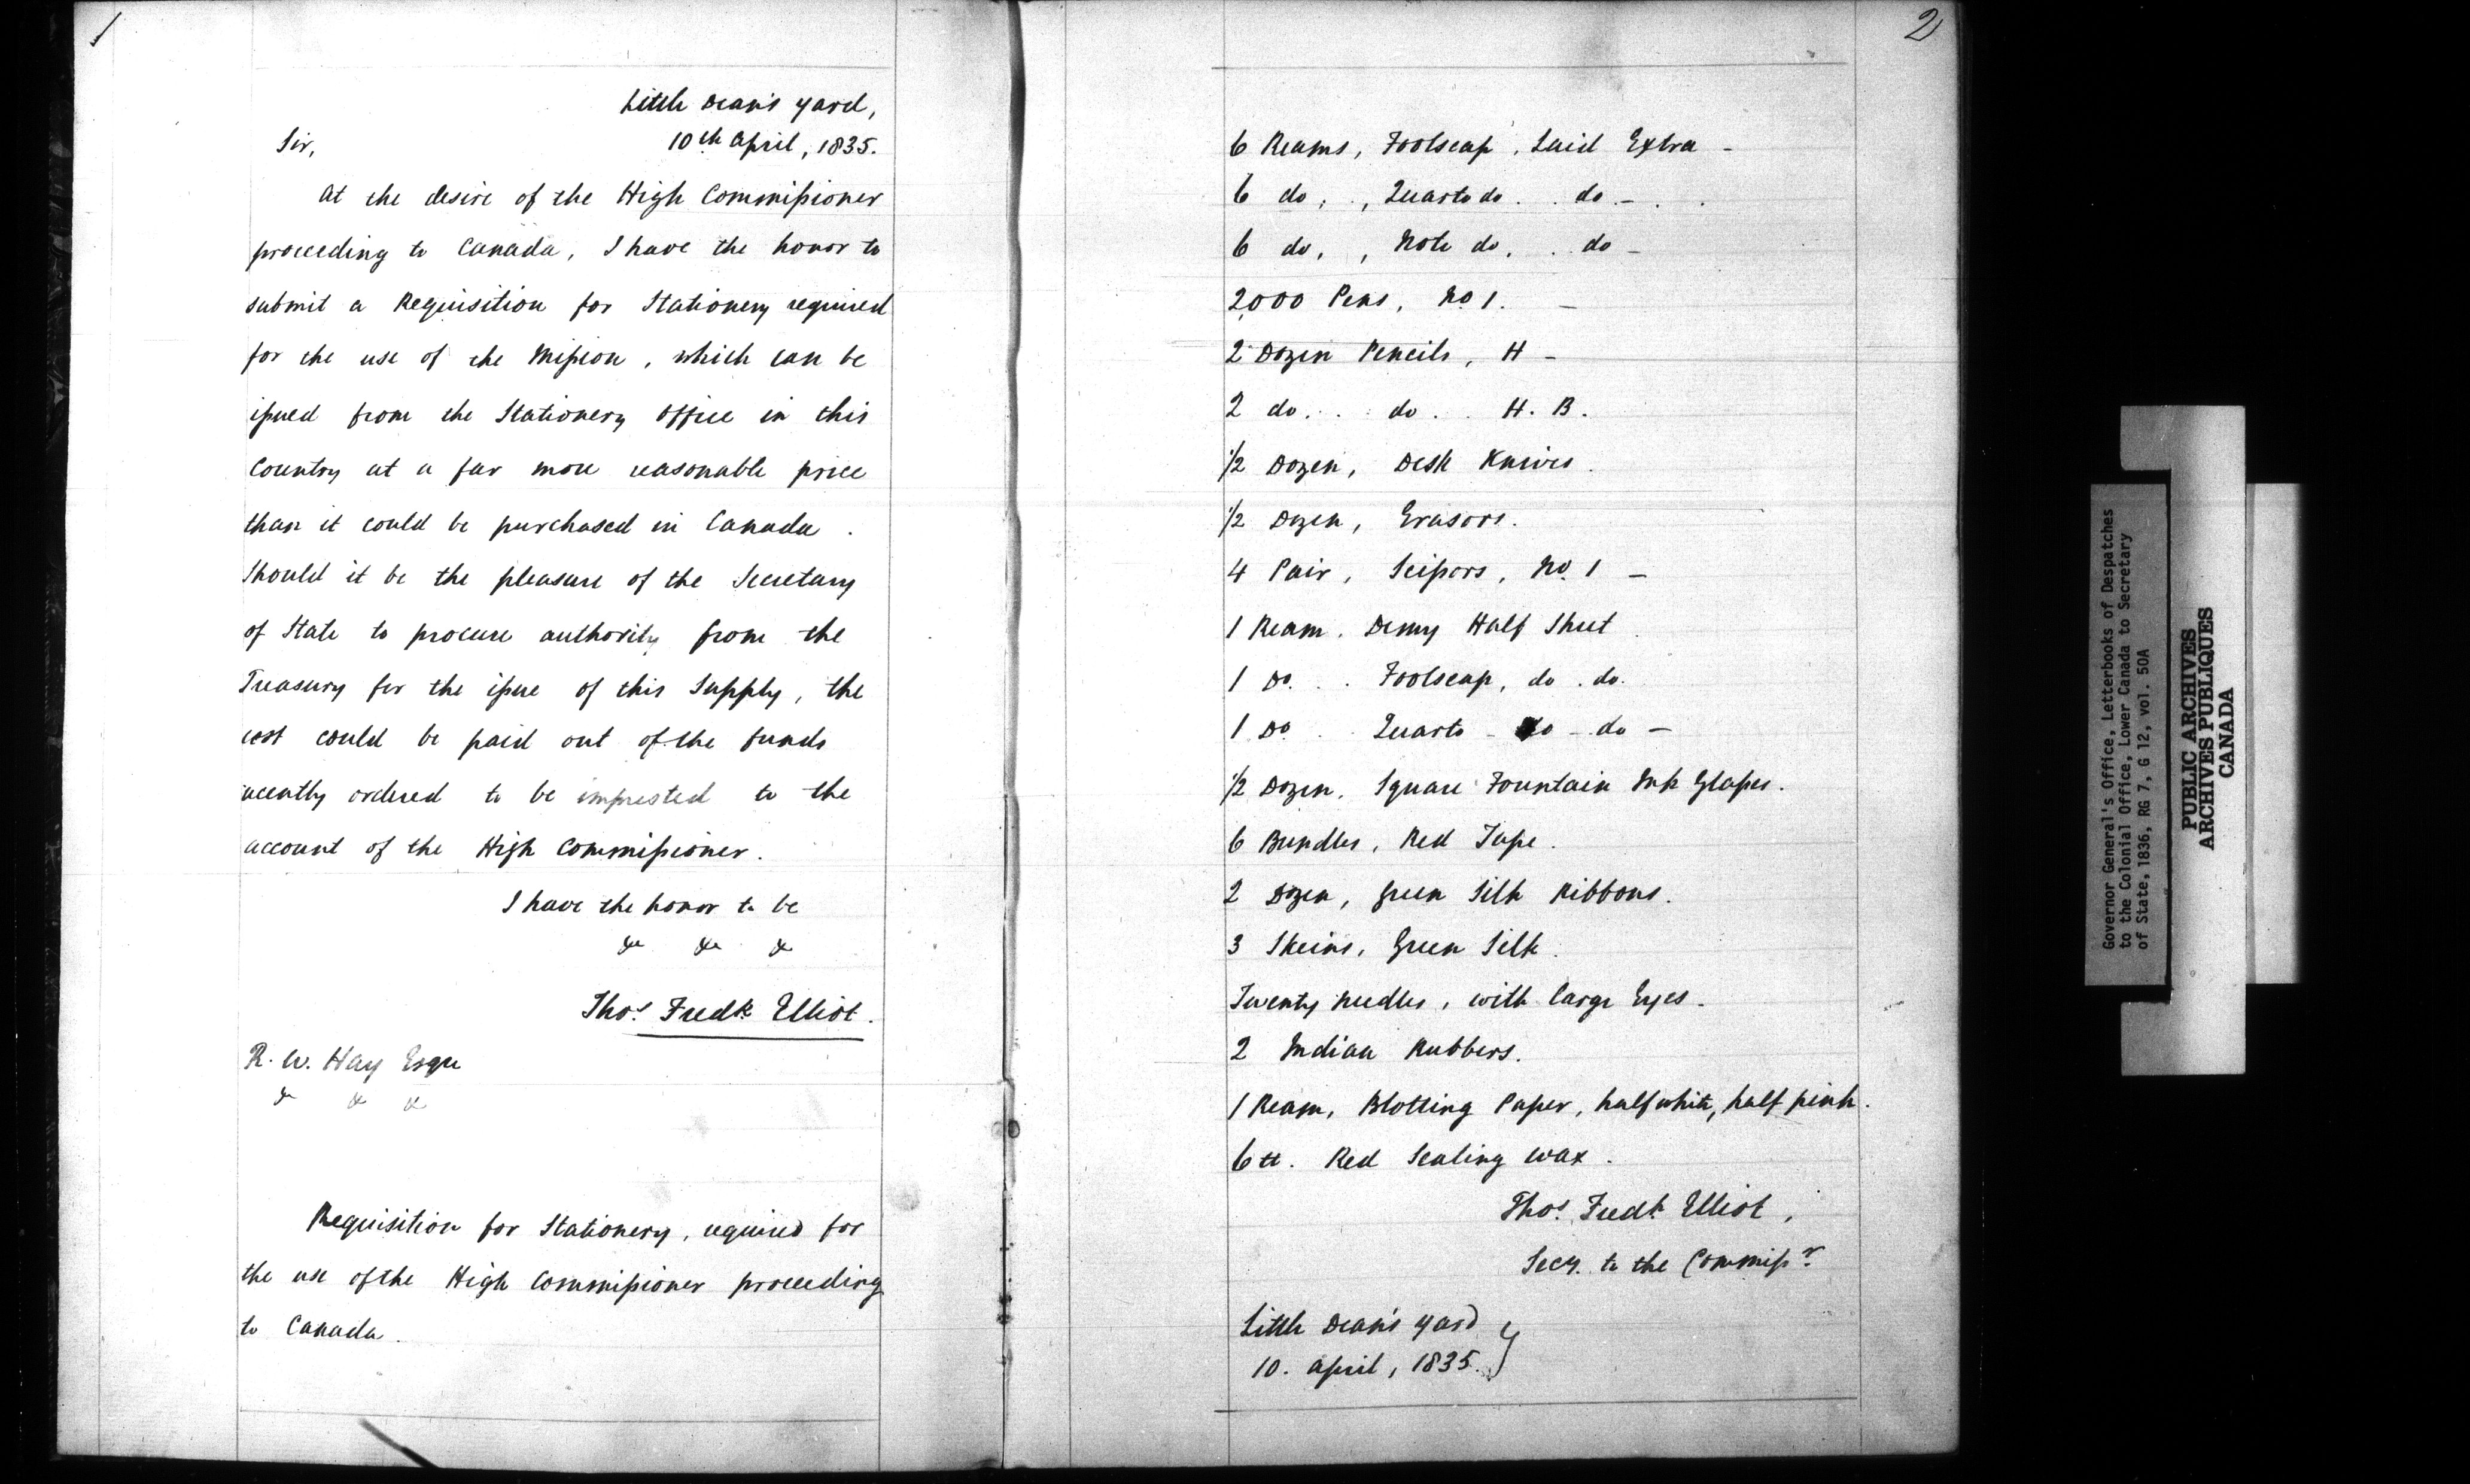 1
Little Dean's Yard,
Sir, 10th April, 1835.
At the desire of the High Commissioner
proceeding to Canada, I have the honor to
submit a Requisition for Stationery required
for the use of the Mission, which can be
issued from the Stationery Office in this
Country at a far more reasonable price
than it could be purchased in Canada.
Should it be the pleasure of the Secretary
of State to procure authority from the
Treasury for the issue of this Supply, the
cost could be paid out of the funds
recently ordered to be imprested to the
account of the High Commissioner.
I have the honor to be
&c &c &c
Thos. Fredk. Elliot.
R. W. Hay Esqre
&c &c &c
Requisition for Stationery, required for
the use of the High Commissioner proceeding
to Canada.
2
6 Reams, Foolscap, Laid Extra -
6 do, , Quarto do . . do -
6 do, , Note do, . do -
2,000 Pens, No 1. -
2 Dozen Pencils, H -
2 do . . do . . H. B.
1/2 Dozen, Desk Knives.
1/2 Dozen, Erasors.
4 Pair, Scissors, No. 1 -
1 Ream, Demy Half Sheet
1 Do. . . Foolscap, do . do.
1 Do . . Quarto - do - do -
1/2 Dozen, Square Fountain Ink Glasses.
6 Bundles, Red Tape.
2 Dozen, Green Silk Ribbons.
3 Skeins, Green Silk.
Twenty needles, with large Eyes.
2 Indian Rubbers.
1 Ream, Blotting Paper, half white, half pink.
6 lb. Red Sealing Wax.
Thos. Fredk. Elliot,
Secy. to the Commissr.
Little Dean's Yard }
10. April, 1835. }
Governor General's Office, Letterbooks of Despatches
to the Colonial Office, Lower Canada to Secretary
of State, 1836, RG 7, G 12, vol. 50A
PUBLIC ARCHIVES
ARCHIVES PUBLIQUES
CANADA